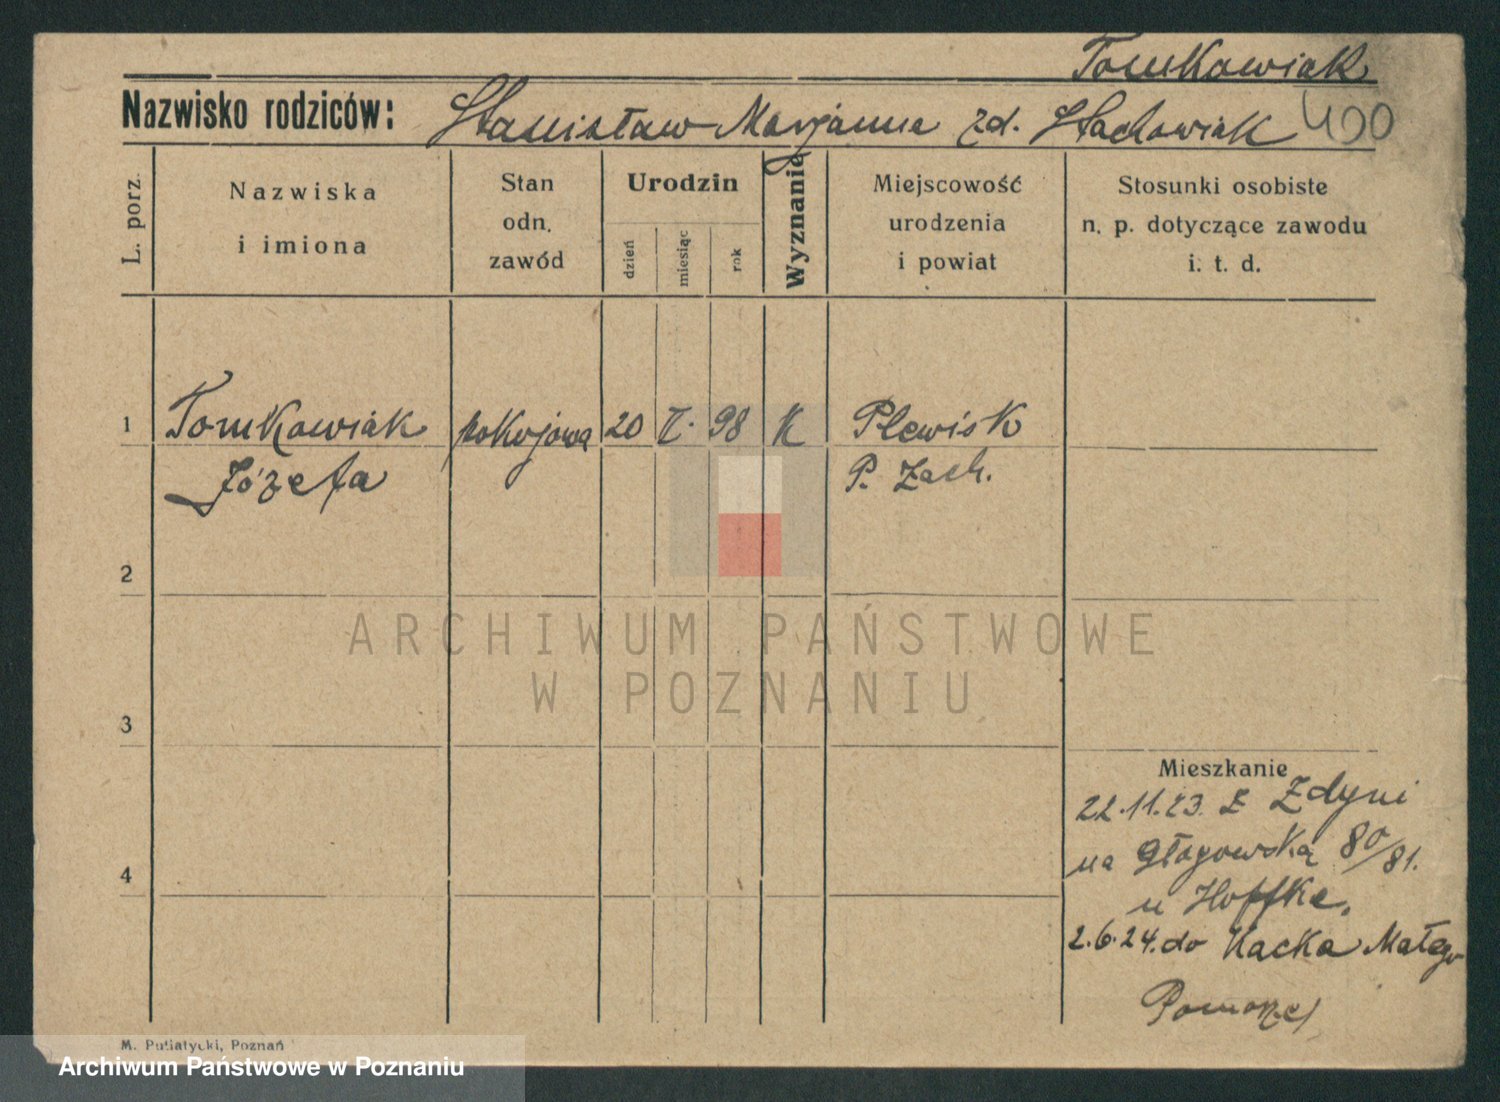 Tomkowiak
Nazwisko rodziców: Stanisław Marjanna zd. Stachowiak 400
L. porz.
Nazwiska
i imiona
Stan
odn.
zawód
Urodzin
dzień
miesiąc
rok
Wyznanie
Miejscowość
urodzenia
i powiat
Stosunki osobiste
n. p. dotyczące zawodu
i. t. d.
1 Tomkowiak pokojowa 20 98 K Plewisk
Józefa P. Zach.
2
ARCHIWUM PAŃSTWOWE
W POZNANIU
3
Mieszkanie
22.11.23. z Zdyni
na Głogowską 80/81.
4
u Hoffke.
2.6.24. do Kacka Małego
Pomorze/
M. Putiatycki, Poznań
Archiwum Państwowe w Poznaniu